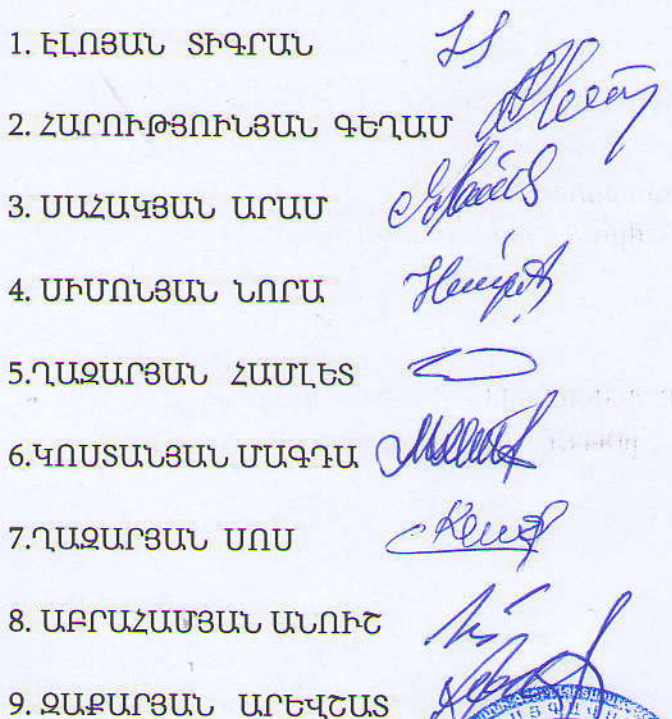 1. ԷԼՈՅԱՆ ՏԻԳՐԱՆ
2. ՀԱՐՈՒԹՅՈՒՆՅԱՆ ԳԵՂԱՄ
3. ՍԱՀԱԿՅԱՆ ԱՐԱՄ
4. ՍԻՄՈՆՅԱՆ ՆՈՐԱ
5.ՂԱԶԱՐՅԱՆ ՀԱՄԼԵՏ
6.ԿՈՍՏԱՆՅԱՆ ՄԱԳԴԱ
7.ՂԱԶԱՐՅԱՆ ՍՈՍ
8. ԱԲՐԱՀԱՄՅԱՆ ԱՆՈՒՇ
9. ԶԱՔԱՐՅԱՆ ԱՐԵՎՇԱՏ